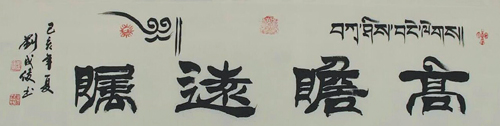 ༄༅།། བཀྲ་ཤིས་བདེ་ལེགས།།
高瞻遠矚
己亥年夏
劉成书